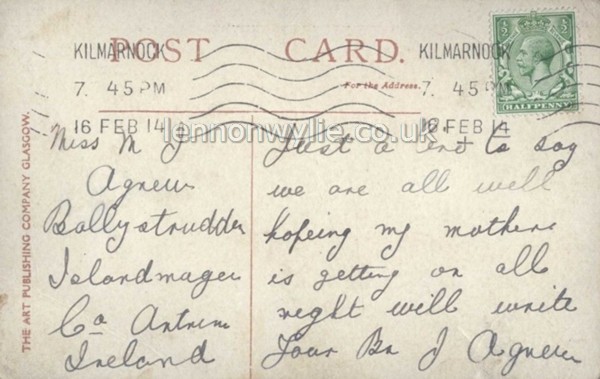 POST CARD.
KILMARNOCK
7. 45 PM
16 FEB 14
KILMARNOCK
7. 45 PM
16 FEB 14
For the Address.
HALFPENNY
lennonwylie.co.uk
THE ART PUBLISHING COMPANY GLASGOW.
Miss M J
Agnew
Ballystrudder
Islandmagee
Co Antrim
Ireland
Just a to say
we are all well
hopeing my mother
is getting on all
right will write
Your Br J Agnew